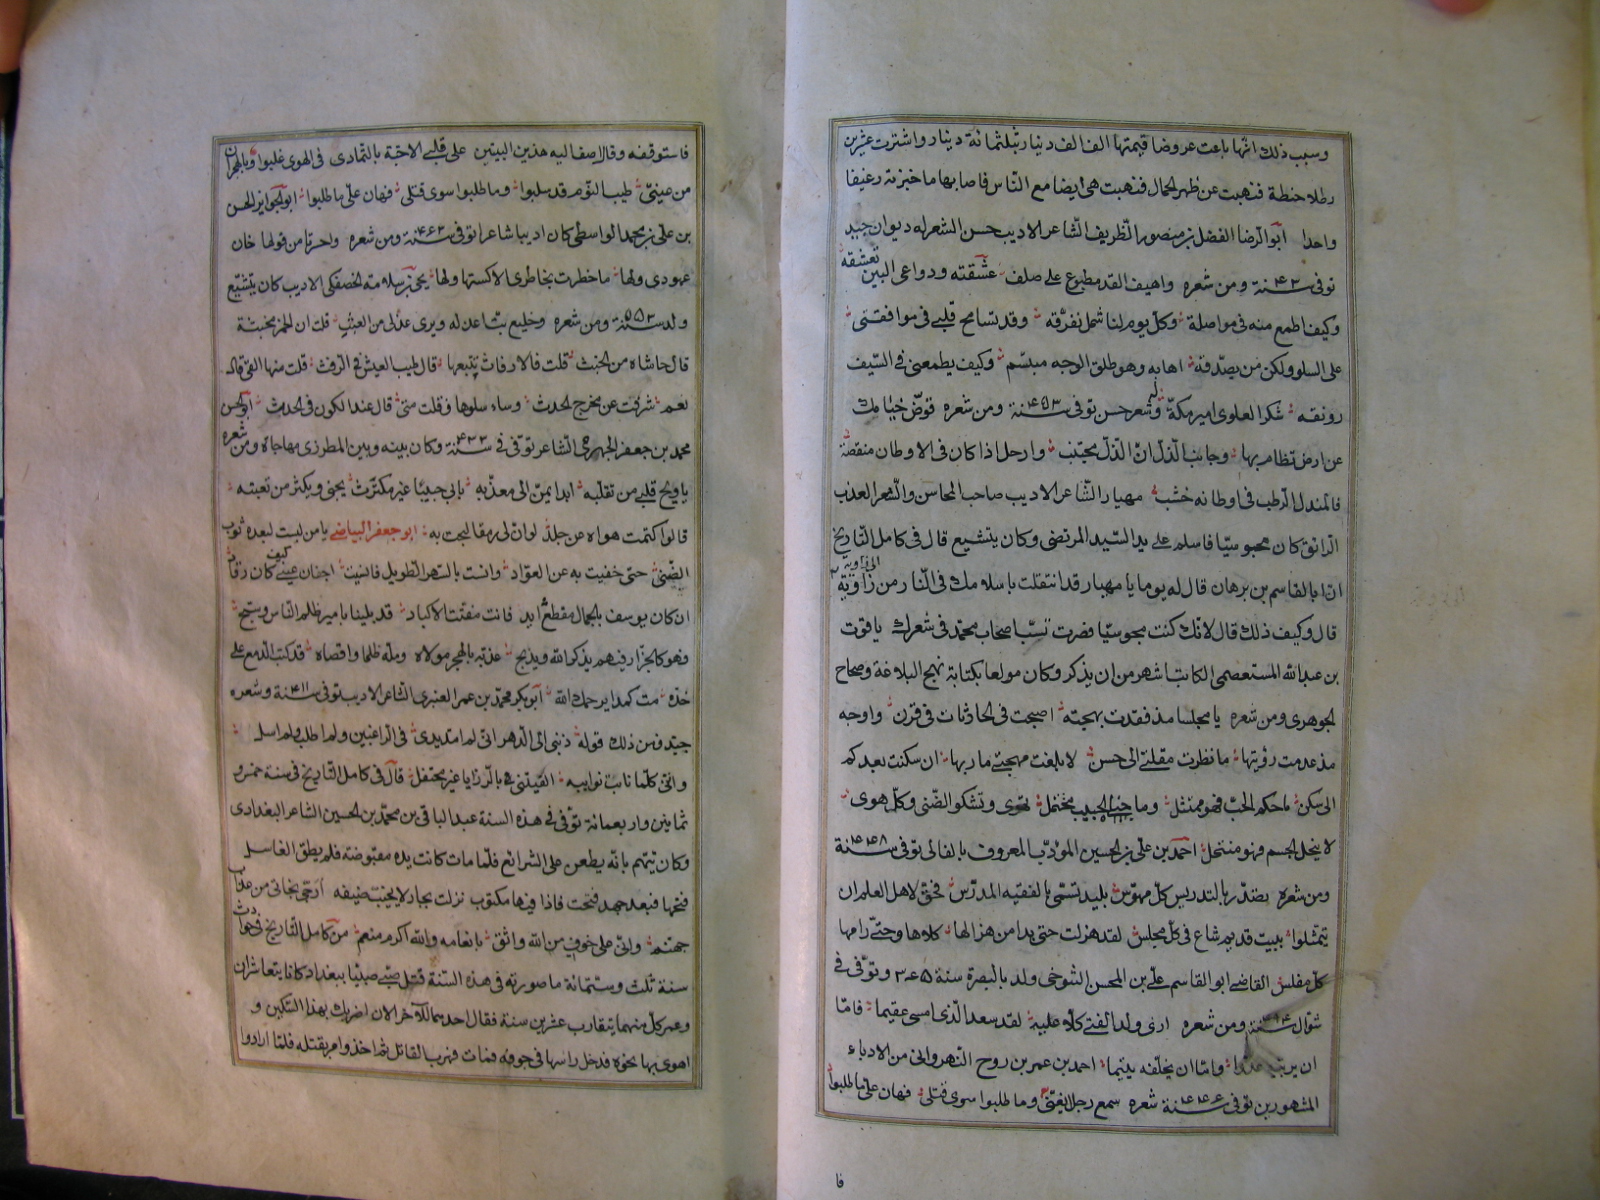 وسبب ذلك انها باعت عروضا قيمتها الف الف دينار بثلثمائة دينار واشترت عشرين
رطلا حنطة فنهبت عن ظهر الحمال فنهبت هى ايضا مع الناس فاصابها ما خبزته رغيفا
واحدا ابو الرضا الفضل بن منصور الظريف الشاعر الاديب حسن الشعر له ديوان جيد
توفى سنة ومن شعره واهيف القد مطبوع على صلف عشقته ودواعى البين تعشقه
وكيف اطمع منه فى مواصلة وكل يوم لنا شمل نفرقه وقد تسامح قلبى فى موافقتى
على السلو ولكن من يصدقه اهابه وهو طلق الوجه مبتسم وكيف يطمعنى فى السيف
رونقه شكر العلوى امير مكة وله شعر حسن توفى ۴۵۳ سنة ومن شعره قوض خيامك
عن ارض تظام بها وجانب الذل ان الذل مجتنب وارحل اذا كان فى الاوطان منقصة
فالمندل الرطب فى اوطانه خشب مهيار الشاعر الاديب صاحب المحاسن والشعر العذب
الرائق كان مجوسيا فاسلم على يد السيد المرتضى وكان يتشيع قال فى كامل التاريخ
ان ابا القاسم بن برهان قال له يوما يا مهيار قد انتقلت باسلامك فى النار من زاوية الى زاوية
قال وكيف ذلك قال لانك كنت مجوسيا فصرت تسب اصحاب محمد فى شعرك ياقوت
بن عبد الله المستعصمى الكاتب اشهر من ان يذكر وكان مولعا بكتابة نهج البلاغة وصحاح
الجوهرى ومن شعره يا مجلسا مذ فقدت بهجته اصبحت فى الحادثات فى قرن واوجه
مذ عدمت رؤيتها ما نظرت مقلتى الى حسن لا بلغت مهجتى ماربها ان سكنت بعدكم
الى سكن ما حكم الحب فهو ممتثل وما جناه الحبيب محتمل تهوى وتشكو الضنى وكل هوى
لا ينحل الجسم فهو منتحل احمد بن على بن الحسين المؤدب المعروف بالفالى توفى ۴۴۸ سنة
ومن شعره تصدر بالتدريس كل مهوس بليد تسمى بالفقيه المدرس فحق لاهل العلم ان
يتمثلوا ببيت قديم شاع فى كل مجلس لقد هزلت حتى بدا من هزالها كلاها وحتى رامها
كل مفلس القاضى ابو القاسم على بن المحسن التنوخى ولد بالبصرة سنة وتوفى فى
شوال سنة ومن شعره ارى ولد الفتى كلا عليه لقد سعد الذى امسى عقيما فاما
ان يربيه عدوا واما ان يخلفه يتيما احمد بن عمر بن روح النهروانى من الادباء
المشهورين توفى سنة شعره سمع رجل يغنى وما طلبوا سوى قتلى فهان على ما طلبوا
فا
فاستوقفه وقال اضف اليه هذين البيتين على قلبى الاحبة بالتمادى فى الهوى غلبوا وبالهجران
من عينى طيب النوم قد سلبوا وما طلبوا سوى قتلى فهان على ما طلبوا ابو الجوايز الحسن
بن على بن محمد الواسطى كان اديبا شاعرا توفى سنة ومن شعره واحربا من قولها خان
عهودى ولها ما خطرت بخاطرى الا كستنى ولها يحيى بن سلامة الحصفكى الاديب كان يتشيع
ولد سنة ومن شعره وخليع بت اعذله ويرى عذلى من العبث قلت ان الخمر مخبثة
قال حاشاه من الخبث قلت فالارفاث تتبعها قال طيب العيش فى الرفث قلت منها القئ قال
نعم شرفت عن مخرج الحدث وساء سلوها فقلت متى قال عند الكون فى الجدث ابو الحسن
محمد بن جعفر الجهرمى الشاعر توفى فى ۴۳۳ سنة وكان بينه وبين المطرزى مهاجاة ومن شعره
يا ويح قلبى من تقلبه ابدا يحن الى معذبه بابى حبيبا غير مكترث يجنى ويكثر من تعتبه
قالوا كتمت هواه عن جلد لو ان لى رمقا لبحت به ابو جعفر البياضى يا من لبست لبعده ثوب
الضنى حتى خفيت به عن العواد وانست بالسهر الطويل فانسيت اجفان عينى كيف كان رقاد
ان كان يوسف بالجمال مقطع ايد فانت مفتت الاكباد قد بلينا بامير ظلم الناس وسبح
فهو كالجزار فيهم يذكر الله ويذبح عذبه بالهجر مولاه ومله ظلما واقصاه قد كتب الدمع على
خده مت كمدا يرحمك الله ابو بكر محمد بن عمر العنبرى الشاعر الاديب توفى سنة وشعره
جيد فمن ذلك قوله ذنبى الى الدهر انى لم امد يدى فى الراغبين ولم اطلب ولم اسل
واننى كلما نابت نوايبه الفيتنى بالرزايا غير محتفل قال فى كامل التاريخ فى سنة خمس و
ثمانين واربعمائة توفى فى هذه السنة عبد الباقى بن محمد بن الحسين الشاعر البغدادى
وكان يتهم بانه يطعن على الشرائع فلما مات كانت يده مقبوضة فلم يطق الغاسل
فتحها فبعد جهد فتحت فاذا فيها مكتوب نزلت بجار لا يخيب ضيفه ارجى نجاتى من عذاب
جهنم وانى على خوفى من الله واثق بانعامه والله اكرم منعم من كامل التاريخ فى حوادث
سنة ثلث وستمائة ما صورته فى هذه السنة قتل صبى صبيا ببغداد كانا يتعاشران
وعمر كل منهما يتقارب عشرين سنة فقال احدهما للآخر الان اضربك بهذا السكين و
اهوى بها نحوه فدخل راسها فى جوفه فمات فهرب القاتل ثم اخذ وامر بقتله فلما ارادوا